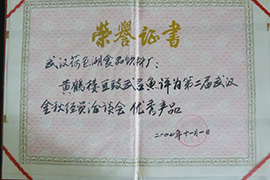 荣誉证书
武汉荷包湖食品饮料厂：
黄鹤楼豆豉武昌鱼评为第二届武汉
金秋经贸洽谈会优秀产品
二〇〇〇年十一月一日